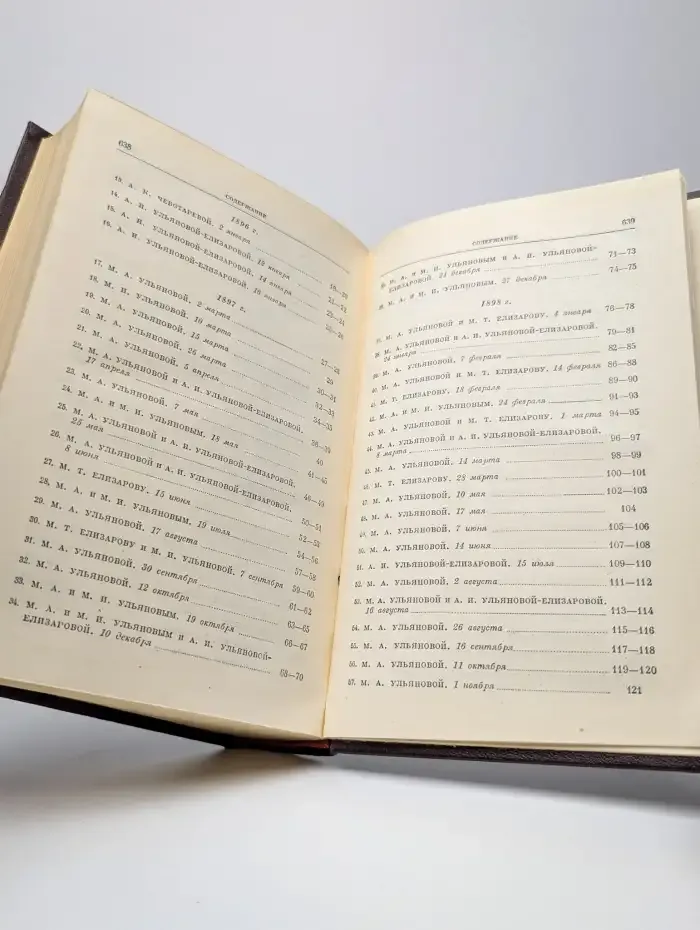 638
СОДЕРЖАНИЕ
1896 г.
13. А. К. ЧЕБОТАРЕВОЙ. 2 января
14. А. И. УЛЬЯНОВОЙ-ЕЛИЗАРОВОЙ. 12 января 18—20
15. А. И. УЛЬЯНОВОЙ-ЕЛИЗАРОВОЙ. 14 января
16. А. И. УЛЬЯНОВОЙ-ЕЛИЗАРОВОЙ. 16 января
1897 г.
17. М. А. УЛЬЯНОВОЙ. 2 марта 27—28
18. М. И. УЛЬЯНОВОЙ. 10 марта 29
19. М. А. УЛЬЯНОВОЙ. 15 марта 30—31
20. М. А. УЛЬЯНОВОЙ. 26 марта 32—33
21. М. А. УЛЬЯНОВОЙ. 5 апреля 34—35
22. М. А. УЛЬЯНОВОЙ и А. И. УЛЬЯНОВОЙ-ЕЛИЗАРОВОЙ.
17 апреля 36—39
23. М. А. УЛЬЯНОВОЙ. 7 мая 40
24. М. А. и М. И. УЛЬЯНОВЫМ. 18 мая 41—45
25. М. А. УЛЬЯНОВОЙ и А. И. УЛЬЯНОВОЙ-ЕЛИЗАРОВОЙ.
25 мая 46—49
26. М. А. УЛЬЯНОВОЙ и А. И. УЛЬЯНОВОЙ-ЕЛИЗАРОВОЙ.
8 июня 50—51
27. М. Т. ЕЛИЗАРОВУ. 15 июня 52—53
28. М. А. и М. И. УЛЬЯНОВЫМ. 19 июля 54—56
29. М. А. УЛЬЯНОВОЙ. 17 августа 57—58
30. М. Т. ЕЛИЗАРОВУ и М. И. УЛЬЯНОВОЙ. 7 сентября 59—60
31. М. А. УЛЬЯНОВОЙ. 30 сентября 61—62
32. М. А. УЛЬЯНОВОЙ. 12 октября 63—65
33. М. А. и М. И. УЛЬЯНОВЫМ. 19 октября 66—67
34. М. А. и М. И. УЛЬЯНОВЫМ и А. И. УЛЬЯНОВОЙ-
ЕЛИЗАРОВОЙ. 10 декабря 68—70
639
СОДЕРЖАНИЕ
М. А. и М. И. УЛЬЯНОВЫМ и А. И. УЛЬЯНОВОЙ-
ЕЛИЗАРОВОЙ. 21 декабря 71—73
М. А. и М. И. УЛЬЯНОВЫМ. 27 декабря 74—75
1898 г.
М. А. УЛЬЯНОВОЙ и М. Т. ЕЛИЗАРОВУ. 4 января 76—78
М. А. УЛЬЯНОВОЙ и А. И. УЛЬЯНОВОЙ-ЕЛИЗАРОВОЙ.
24 января 79—81
М. А. УЛЬЯНОВОЙ. 7 февраля 82—85
40. М. А. УЛЬЯНОВОЙ и М. Т. ЕЛИЗАРОВУ. 14 февраля 86—88
41. М. Т. ЕЛИЗАРОВУ. 18 февраля 89—90
42. М. А. и М. И. УЛЬЯНОВЫМ. 24 февраля 91—93
43. М. А. УЛЬЯНОВОЙ и М. Т. ЕЛИЗАРОВУ. 1 марта 94—95
44. М. А. УЛЬЯНОВОЙ и А. И. УЛЬЯНОВОЙ-ЕЛИЗАРОВОЙ.
8 марта 96—97
45. М. А. УЛЬЯНОВОЙ. 14 марта 98—99
46. М. Т. ЕЛИЗАРОВУ. 28 марта 100—101
47. М. А. УЛЬЯНОВОЙ. 10 мая 102—103
48. М. А. УЛЬЯНОВОЙ. 17 мая 104
49. М. А. УЛЬЯНОВОЙ. 7 июня 105—106
50. М. А. УЛЬЯНОВОЙ. 14 июня 107—108
51. А. И. УЛЬЯНОВОЙ-ЕЛИЗАРОВОЙ. 15 июля 109—110
52. М. А. УЛЬЯНОВОЙ. 2 августа 111—112
53. М. А. УЛЬЯНОВОЙ и А. И. УЛЬЯНОВОЙ-ЕЛИЗАРОВОЙ.
16 августа 113—114
54. М. А. УЛЬЯНОВОЙ. 26 августа 115—116
55. М. А. УЛЬЯНОВОЙ. 16 сентября 117—118
56. М. А. УЛЬЯНОВОЙ. 11 октября 119—120
57. М. А. УЛЬЯНОВОЙ. 1 ноября 121